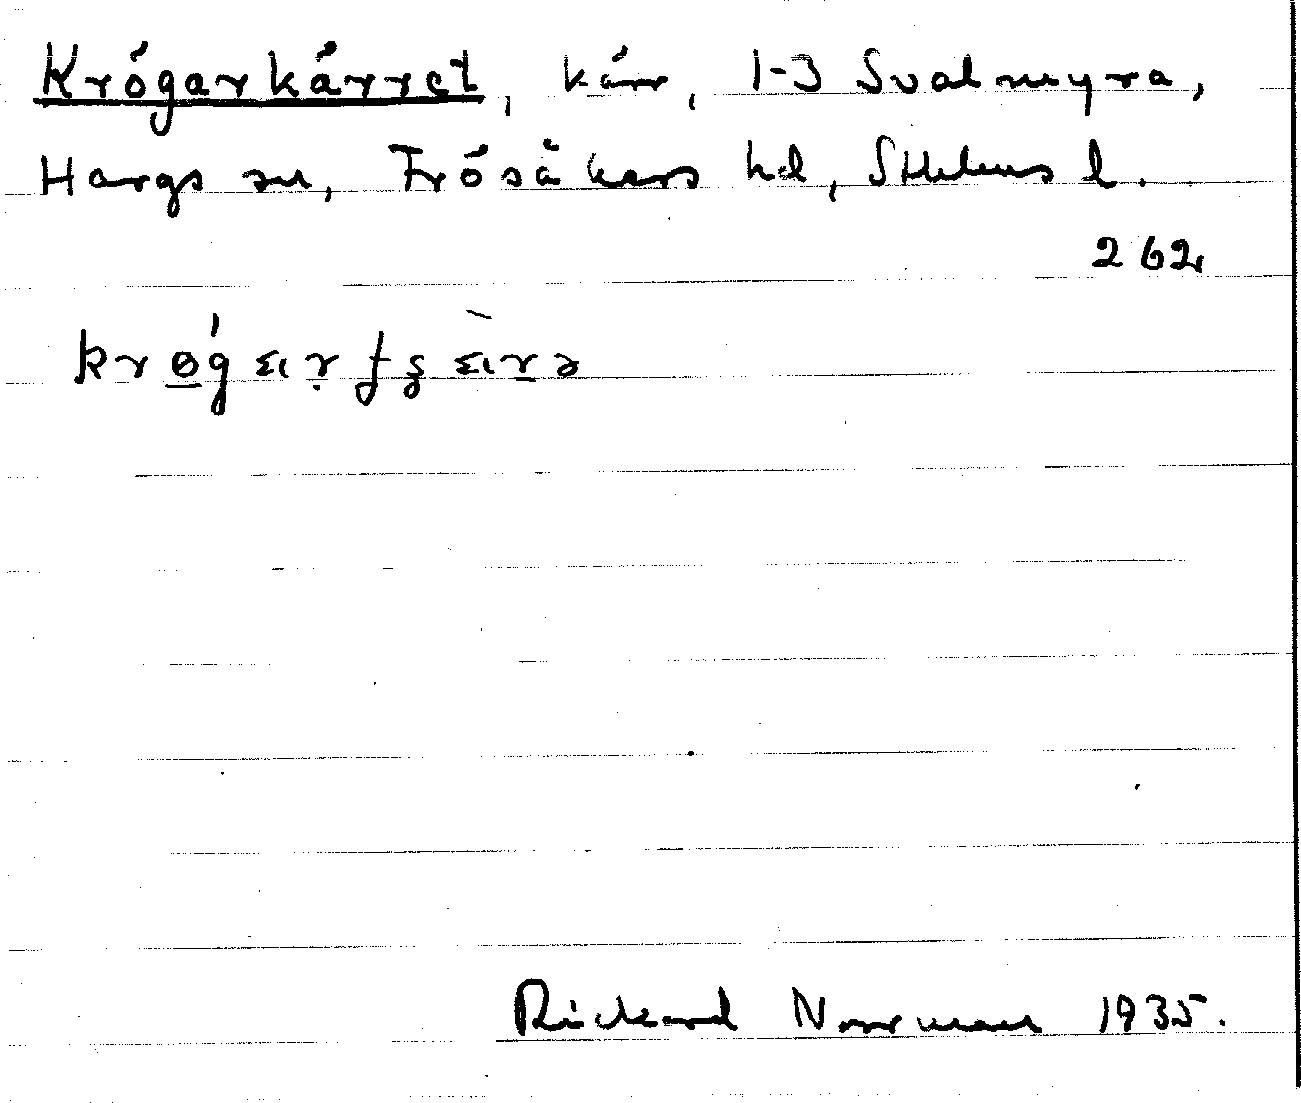 Krögarkärret, kärr, 1-3 Svalmyra,
Hargs sn, Frösåkers hd, Sthlms l.
262
Rickard Norrman 1935.